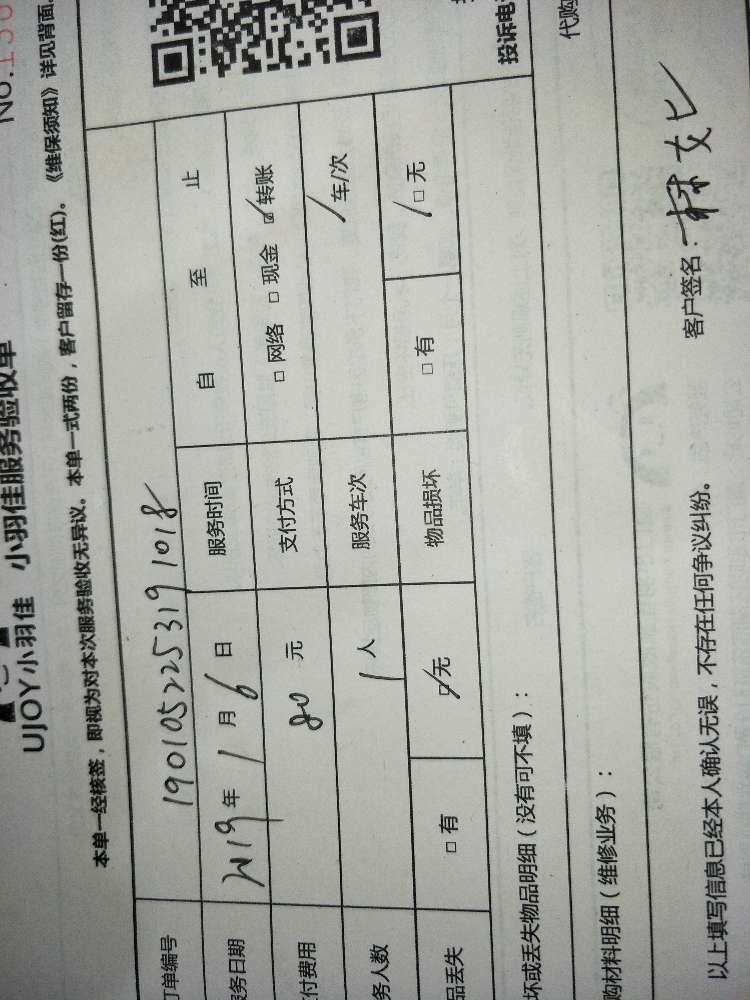 No.
UJOY小羽佳 小羽佳服务验收单
本单一经核签，即视为对本次服务验收无异议。本单一式两份，客户留存一份(红)。《维保须知》详见背面。
订单编号 1901052253191018
服务日期 2019年1月6日 服务时间 自 至 止
付费用 80元 支付方式 □网络 □现金 ☑转账
务人数 1人 服务车次 / 车/次
品丢失 □有 ☑无 物品损坏 □有 ☑无
坏或丢失物品明细（没有可不填）：
购材料明细（维修业务）：
以上填写信息已经本人确认无误，不存在任何争议纠纷。 客户签名：
投诉电
代购